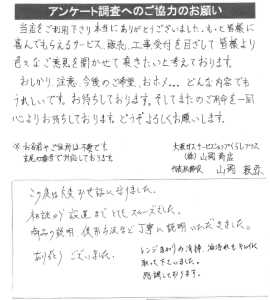 アンケート調査へのご協力のお願い
当店をご利用下さり本当にありがとうございました。もっと皆様に
喜んでもらえるサービス、販売、工事受付を目ざして皆様より
色々なご意見を聞かせて頂きたいと考えております。
おしかり、注意、今後のご希望、おホメ… どんな内容でも
うれしいです。お待ちしております。そしてまたのご用命を一同
心よりお待ちしております。どうぞよろしくお願いします。
※ お名前やご住所は不要です。
大阪ガスサービスショップ
(株) 山岡商店
山岡
この度は大変お世話になりました。
相談から設置まで とてもスムーズでした。
商品の説明 使用方法など丁寧に説明いただきました。
ありがとう ございました。
レンジまわりの清掃、油汚れも キレイに
取って下さいました。
感謝しております。